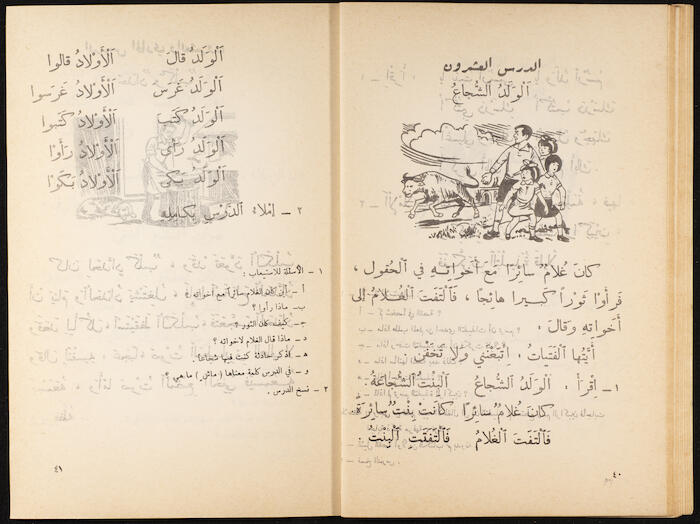 الدرس العشرون
اَلْوَلَدُ الشُّجاعُ
كانَ غُلامٌ سائِرًا مَعَ أخَواتِهِ في الحُقول ،
فَرأَوْا ثَوْرًا كَبيرا هائِجًا ، فَالْتَفَتَ الغُلامُ إلى
أخَواتِهِ وَقالَ :
أَيَّتُها الفَتَياتُ : اِتْبَعْنَني ولا تَخَفْنَ
١ – اِقْرَأْ : اَلْوَلَدُ الشُّجاعُ اَلْبِنْتُ الشُّجاعَةُ
كانَ غُلامٌ سائِرًا كانَتْ بِنْتٌ سائِرَةً
فَالْتَفَتَ الغُلامُ فَالْتَفَتَتِ البِنْتُ
٤٠
اَلْوَلَدُ قالَ اَلْأَوْلادُ قالوا
اَلْوَلَدُ غَرَسَ اَلْأَوْلادُ غَرَسوا
اَلْوَلَدُ كَتَبَ اَلْأَوْلادُ كَتَبوا
اَلْوَلَدُ رَأى اَلْأَوْلادُ رَأَوْا
اَلْوَلَدُ بَكى اَلْأَوْلادُ بَكَوْا
٢ – اِمْلاءُ الدَّرْسِ بِكامِلِهِ
١ – الأسئلة للاستيعاب :
أ – أين كان الغلام سائراً مع أخواته ؟
ب – ماذا رأوا ؟
جـ – كيف كان الثور ؟
د – ماذا قال الغلام لاخواته ؟
هـ – اذكر حادثة كنت فيها شجاعا .
و – في الدرس كلمة معناها (ماش) ما هي ؟
٢ – نسخ الدرس .
٤١